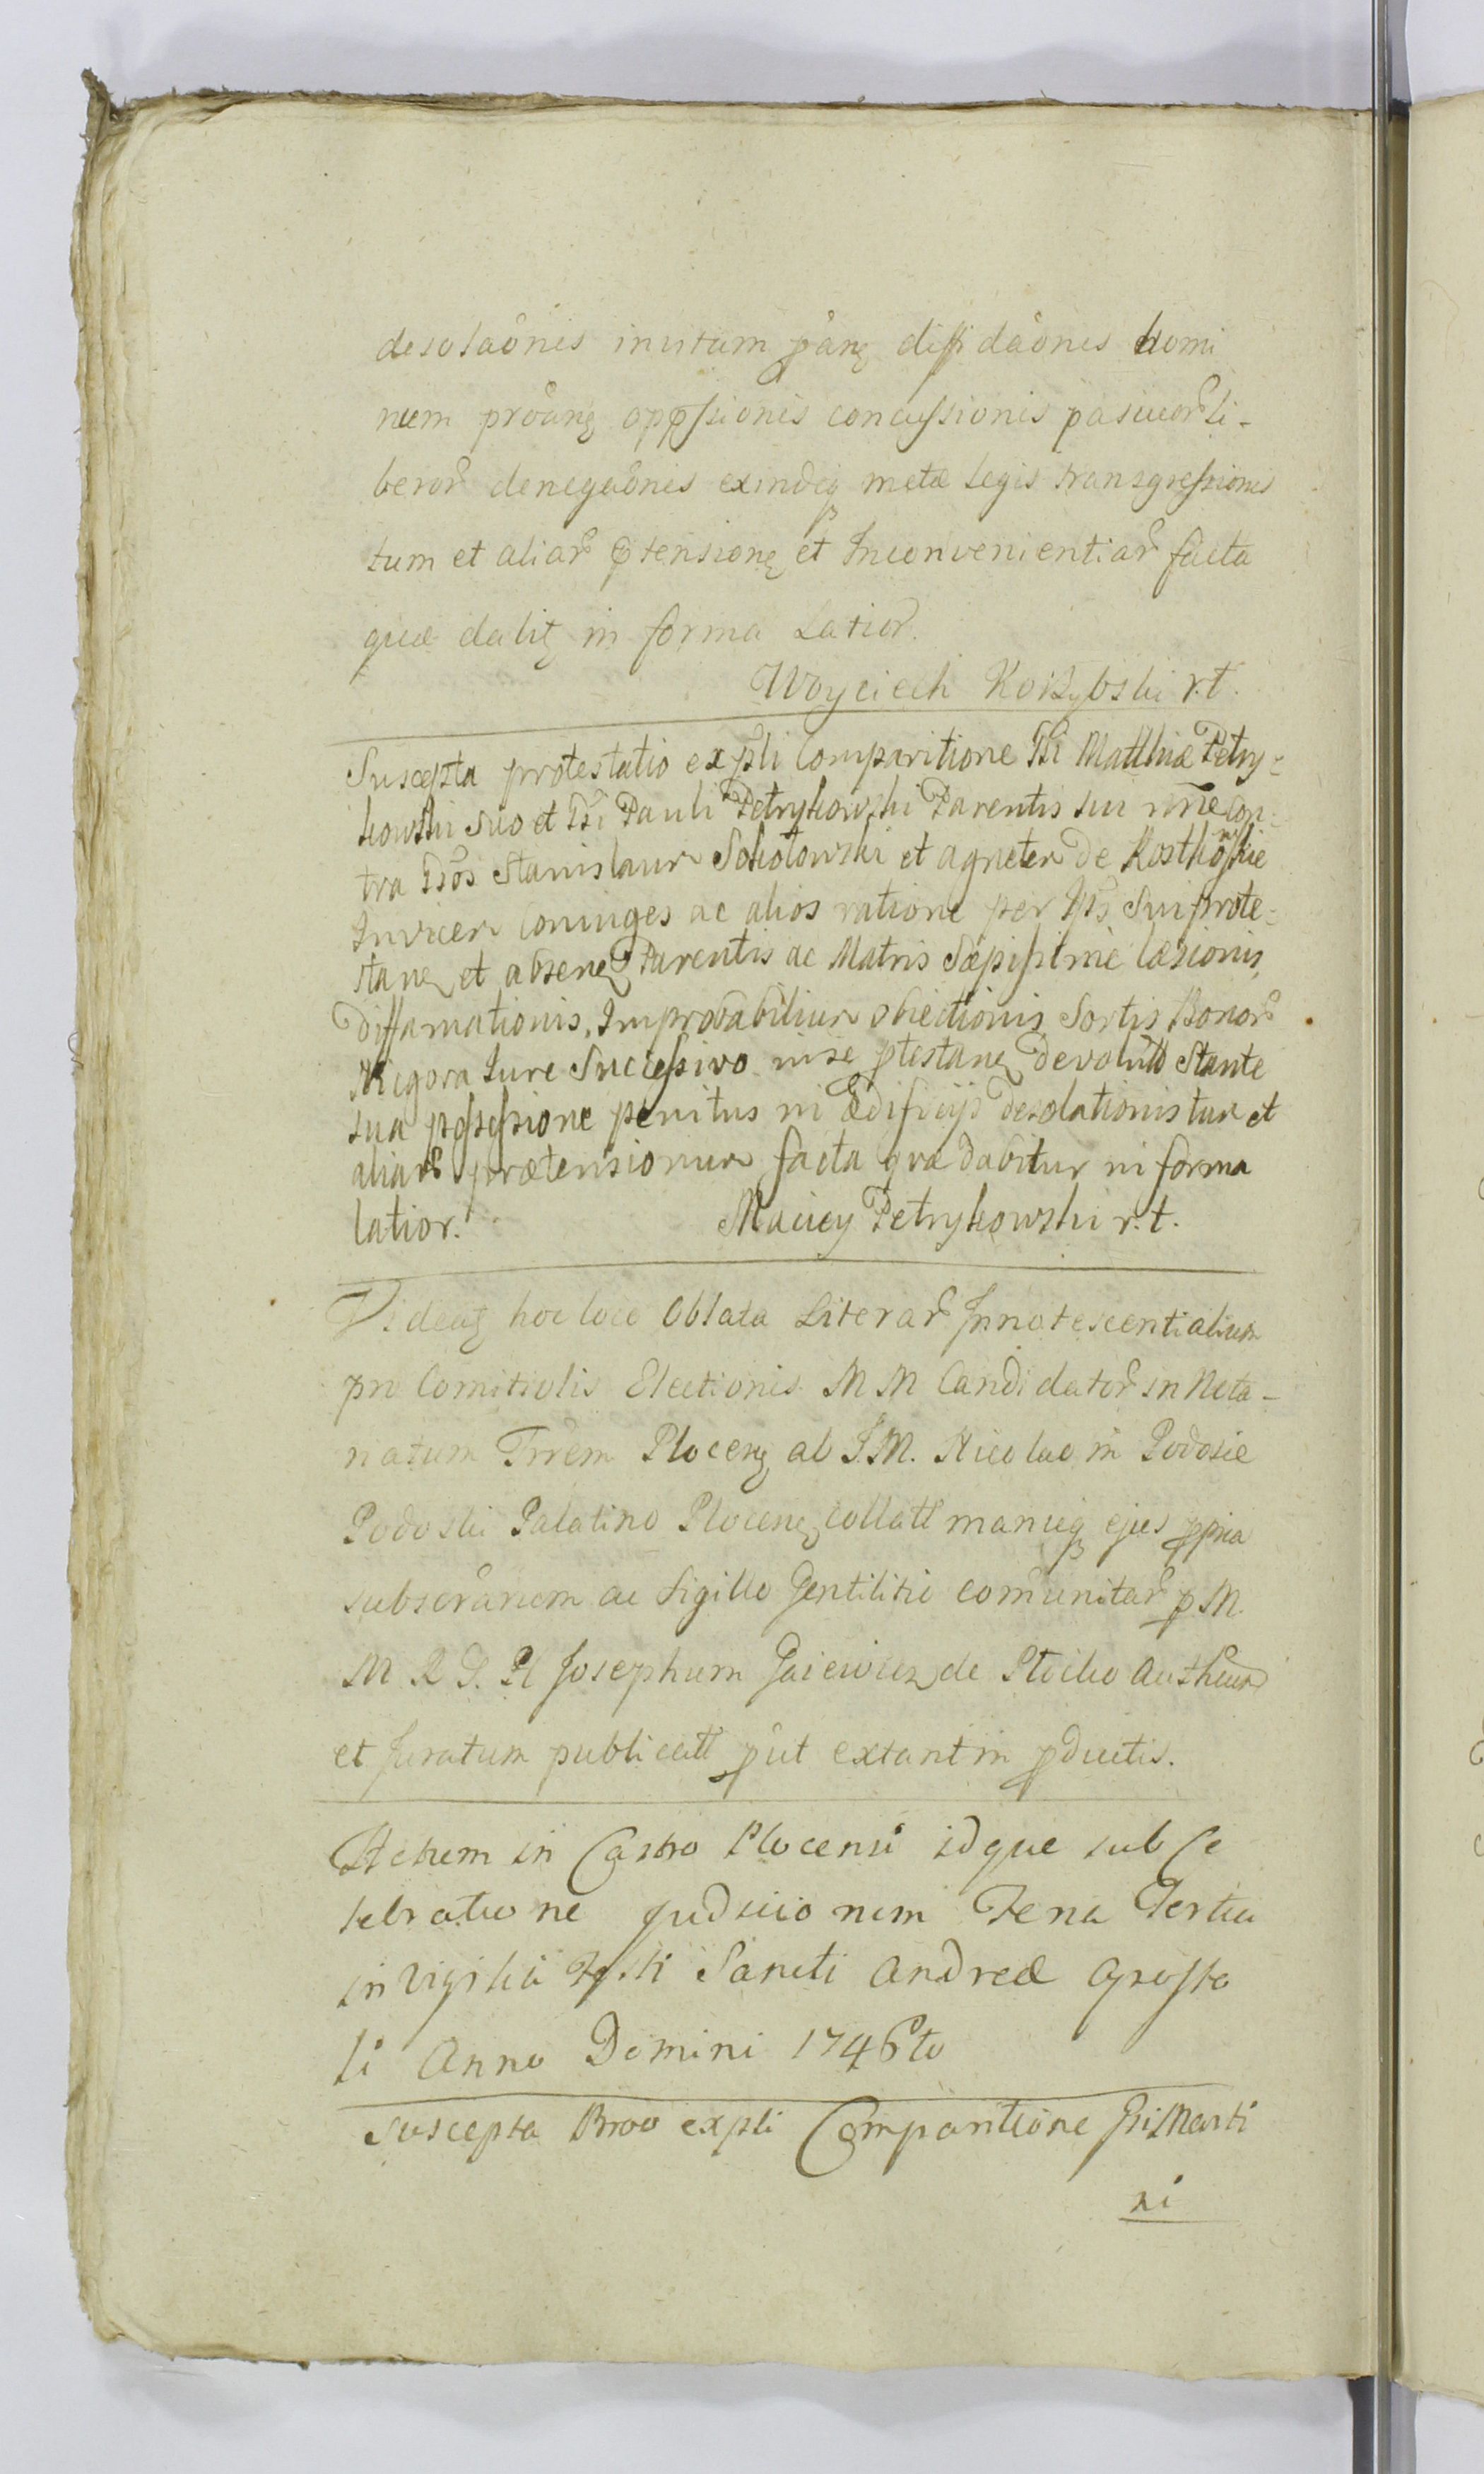 desolaonis invitam pang diffidaonis homi
num proang oppssionis concussionis pascuor li-
beror denegaonis exindeq metæ legis transgressionis
tum et aliar ptensione et Inconvenientiar facta
quæ dabit in forma Latior.
Woyciech r.t.
Suscepta protestatio expli Comparitione Matthiæ Petry=
kowski suo et Pauli Petrykowski Parentis sui nne con=
tra Stanislaum Sokołowski et agnetem De
Invicem coniuges ac alios ratione per sui prote=
stane et absene Parentis ac Matris Sæpissime læsionis,
Diffamationis, Improbabilium obiectionis Sortis Bonor
Nigora Iure Successivo in se ptestane Devoluto Stante
sua possessione penitus in Ædificijs Desolationis tum et
aliar prætensionum facta quæ dabitur in forma
latior. Maciey Petrykowski r.t.
Videat hoc loco Oblata Literar Innotescentialium
pro Comitiolis Electionis M M Candidator in Nota-
riatum Trrem Plocene ab I.M. Nicolao in Podosie
Podoski Palatino Plocene collatt manuq ejus ppria
subscranem ac Sigillo Gentilitio comunitar p M.
M R D. Josephum Gaiewicz de Płocko Authen
et Juratum publicatt put extant in pductis.
Actum in Castro Plocensi idque sub Ce
lebratione Judicio num Feria Tertia
in Vigilia Festi Sancti Andreæ Aposto
li Anno Domini 1746to
Suscepta Prottio expli Comparitione Marti
ni